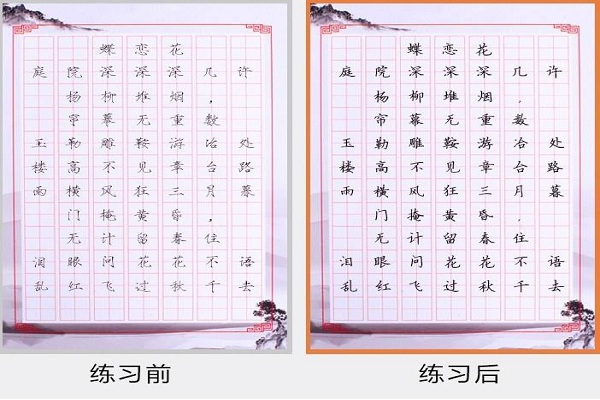 蝶恋花
庭院深深深几许
杨柳堆烟，
帘幕无重数
玉勒雕鞍游冶处
楼高不见章台路
雨横风狂三月暮
门掩黄昏，
无计留春住
泪眼问花花不语
乱红飞过秋千去
练习前
蝶恋花
庭院深深深几许
杨柳堆烟，
帘幕无重数
玉勒雕鞍游冶处
楼高不见章台路
雨横风狂三月暮
门掩黄昏，
无计留春住
泪眼问花花不语
乱红飞过秋千去
练习后